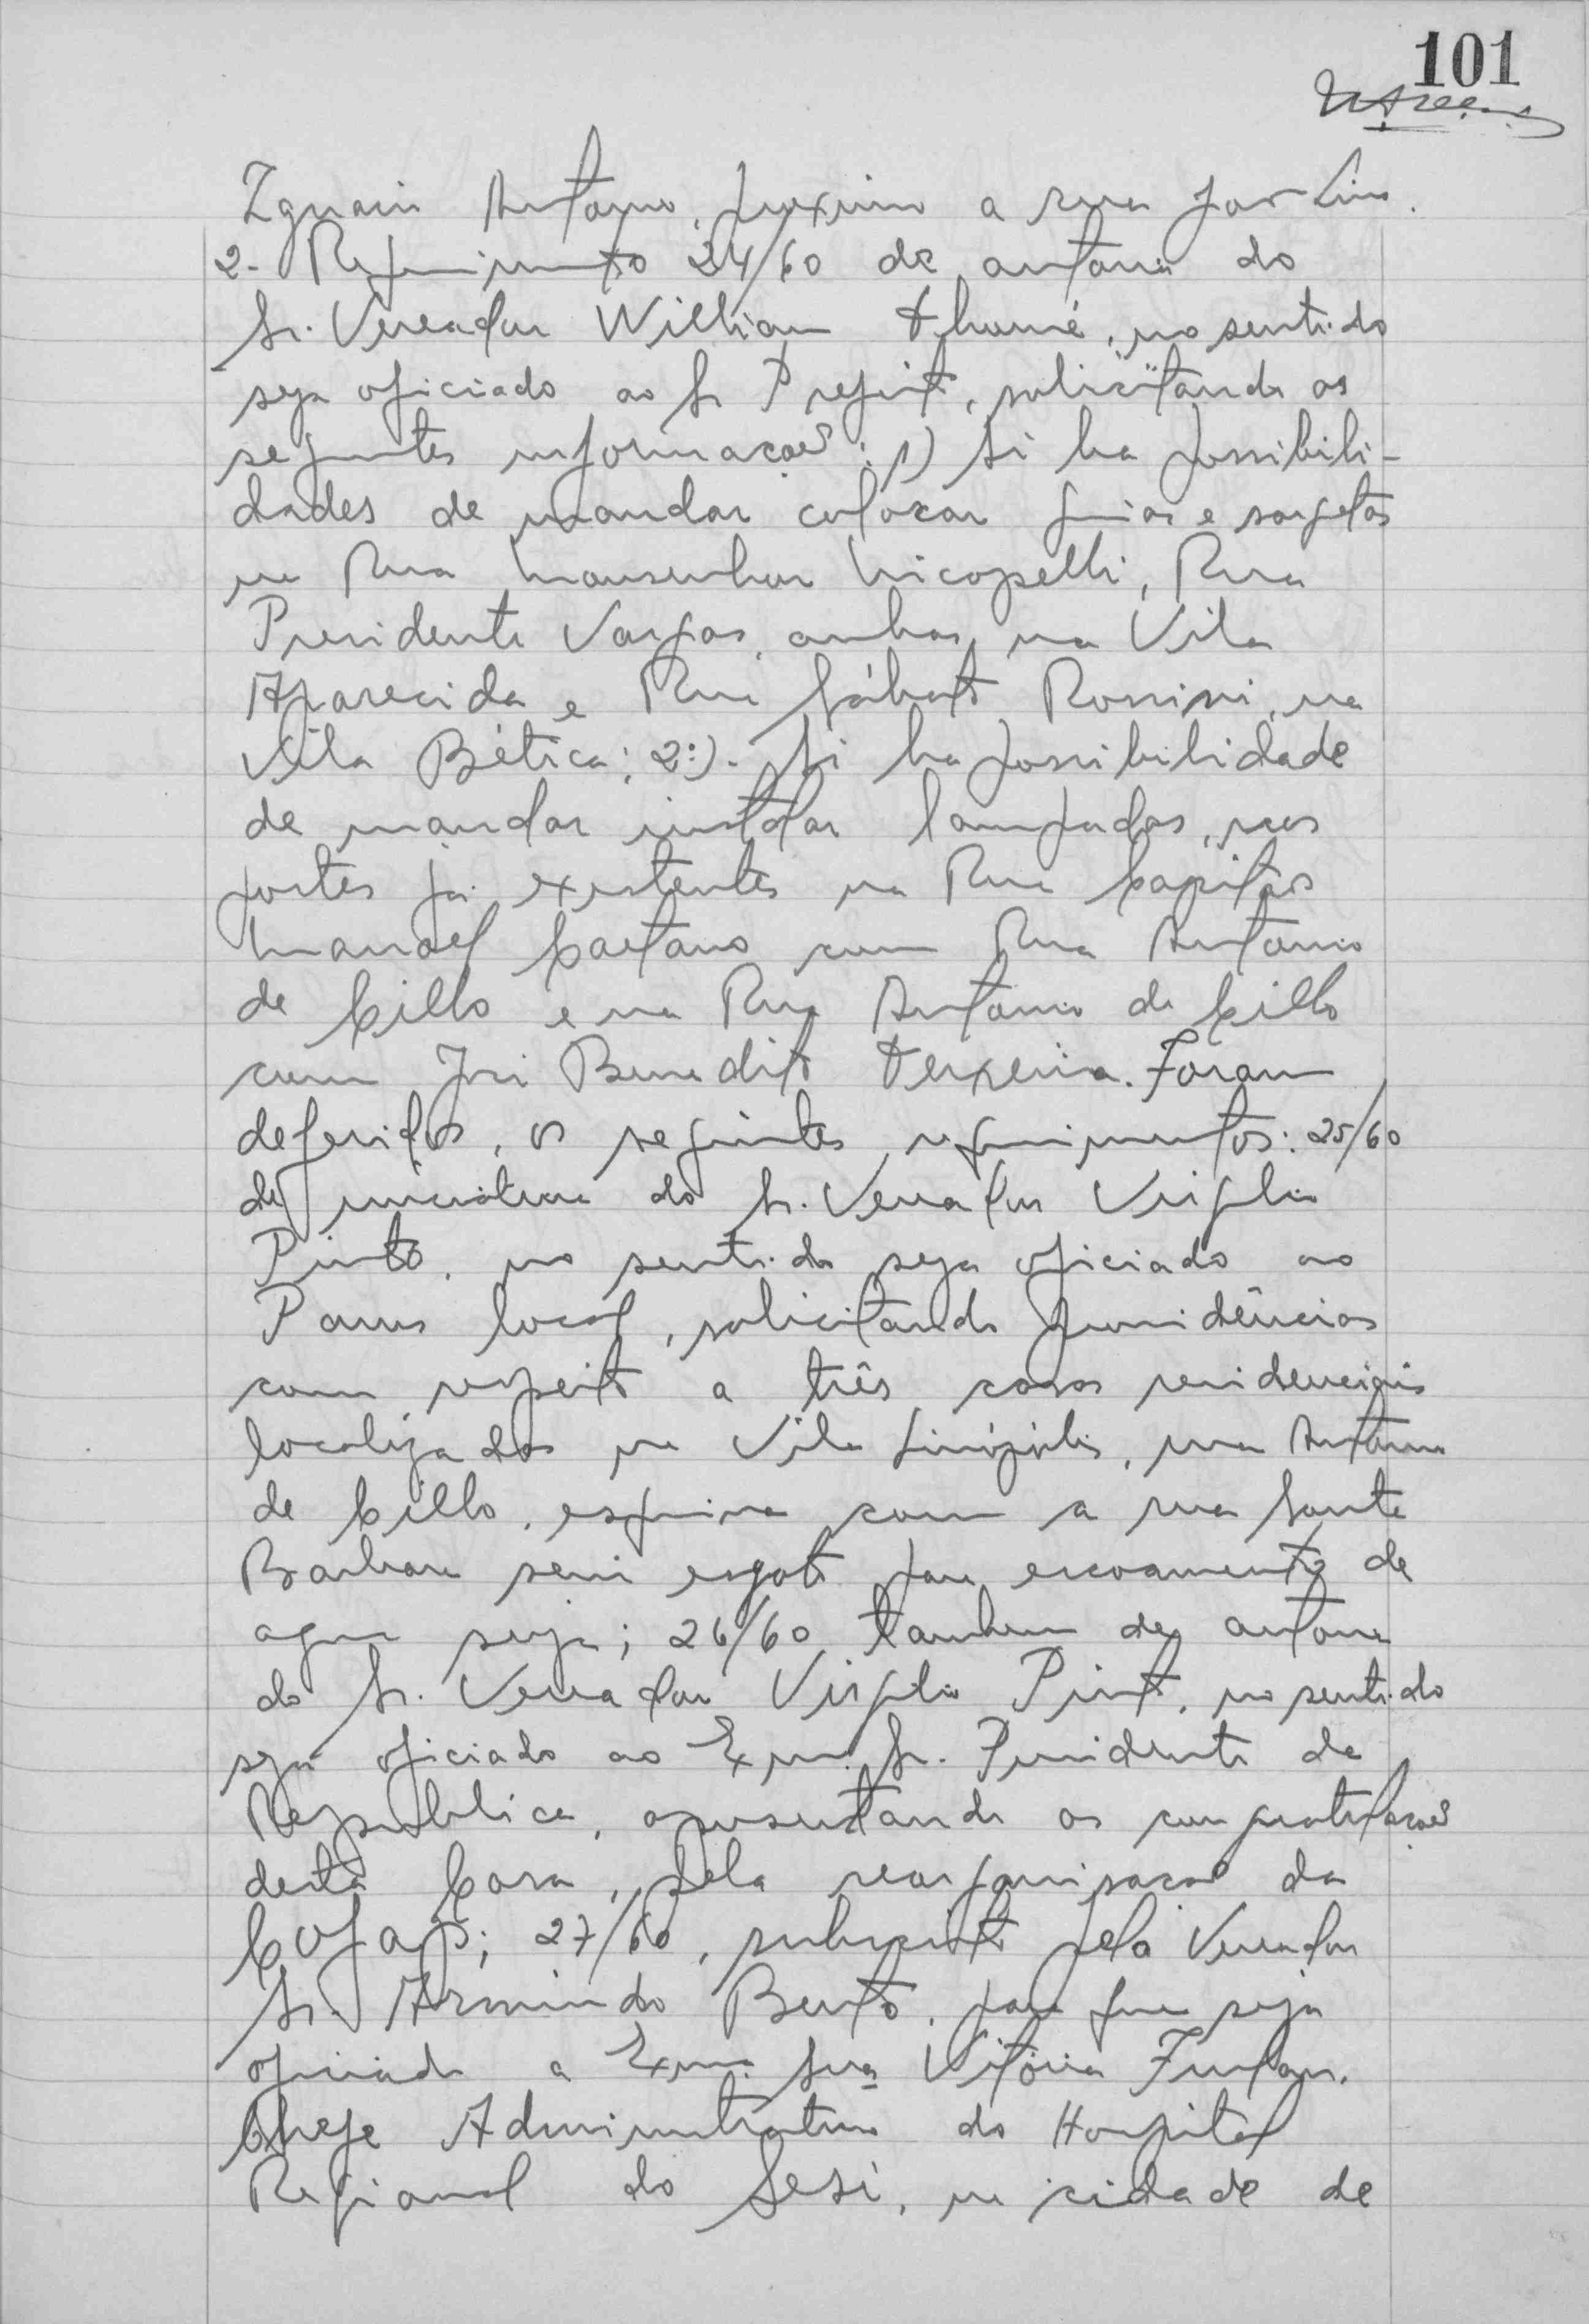 101
Ignacio Antonio, proximo a rua José Lino.
2- Requerimento 24/60 de autoria do
Sr. Vereador William Thomé, no sentido
seja oficiado ao Sr Prefeito, solicitando as
seguintes informações: 1) Si ha possibili-
dades de mandar colocar guias e sargetas
na Rua Monsenhor Nicopelli, Rua
Presidente Vargas, ambas na Vila
Aparecida e Rua Sábato Ronsini, na
Vila Bética; 2º). Si ha possibilidade
de mandar instalar lampadas, nos
postes já existentes na Rua Capitão
Manoel Caetano com Rua Antonio
de Cillo e na Rua Antonio de Cillo
com José Benedito Teixeira. Foram
deferidos, os seguintes requerimentos: 25/60
de iniciativa do Sr. Vereador Virgilio
Pinto, no sentido seja oficiado ao
Pams local, solicitando providências
com respeito a três casas residenciais
localizadas na Vila Linópolis, rua Antonio
de Cillo, esquina com a rua Santa
Barbara sem esgoto para escoamento de
agua suja; 26/60 tambem de autoria
do Sr. Vereador Virgilio Pinto, no sentido
seja oficiado ao Exmo. Sr. Presidente da
Republica, apresentando as congratulações
desta Casa, pela reorganisação da
Cofap; 27/60, subscrito pelo Vereador
Sr. Armindo Bento, para que seja
oficiado a Exma. Sra Vitória Furlan.
Chefe Administrativa do Hospital
Regional do Sesi, na cidade de